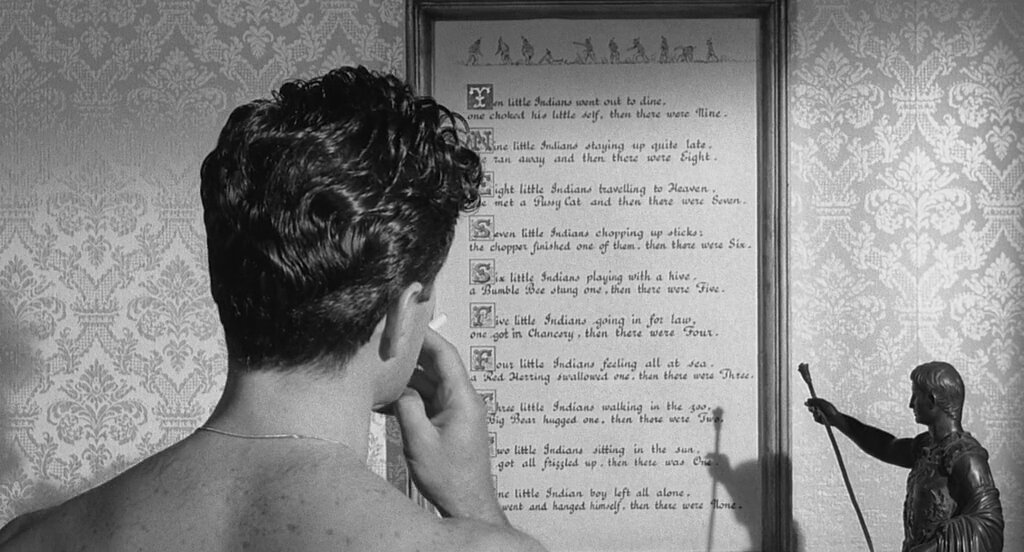 Ten little Indians went out to dine,
one choked his little self, then there were Nine.
Nine little Indians staying up quite late,
ran away and then there were Eight.
Eight little Indians travelling to Heaven,
met a Pussy Cat and then there were Seven.
Seven little Indians chopping up sticks;
the chopper finished one of them, then there were Six.
Six little Indians playing with a hive,
a Bumble Bee stung one, then there were Five.
Five little Indians going in for law,
one got in Chancery, then there were Four.
Four little Indians feeling all at sea,
a Red Herring swallowed one, then there were Three.
Three little Indians walking in the zoo,
Big Bear hugged one, then there were Two.
Two little Indians sitting in the sun,
got all frizzled up, then there was One.
One little Indian boy left all alone,
went and hanged himself, then there were None.